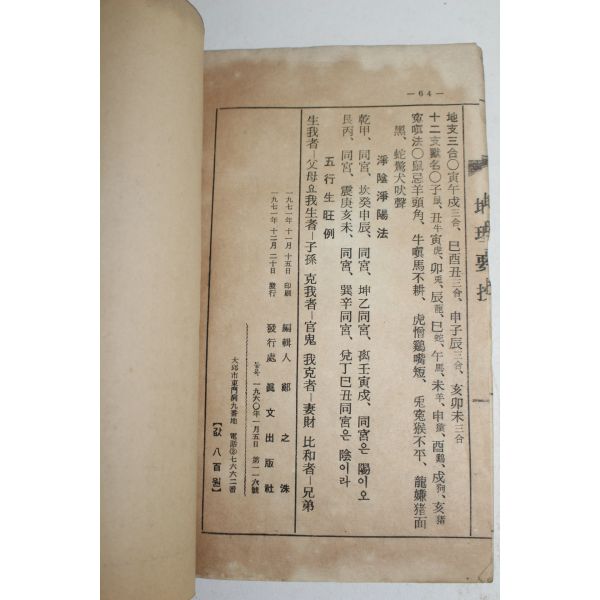 — 64 —
地支三合〇寅午戌三合、巳酉丑三合、申子辰三合、亥卯未三合
十二支獸名〇子鼠、丑牛寅虎、卯兎、辰龍、巳蛇、午馬、未羊、申猿、酉鷄、戌狗、亥猪
寃嗔法〇鼠忌羊頭角、牛嗔馬不耕、虎憎鷄嘴短、兎寃猴不平、龍嫌猪面
黑、蛇驚犬吠聲
淨陰淨陽法
乾甲、同宮、坎癸申辰、同宮、坤乙同宮、离壬寅戌、同宮은 陽이오
艮丙、同宮、震庚亥未、同宮、巽辛同宮、兌丁巳丑同宮은 陰이라
五行生旺例
生我者—父母요 我生者—子孫 克我者—官鬼 我克者—妻財 比和者—兄弟
一九七一年 十一月 十五日 印刷
一九七一年 十二月 二十日 發行
編輯人 鄭之洙
發行處 眞文出版社
등록 一九六〇年一月五日 第一一六號
大邱市東門洞九番地 電話②七六六二番
【값 八百원】
地理要抄